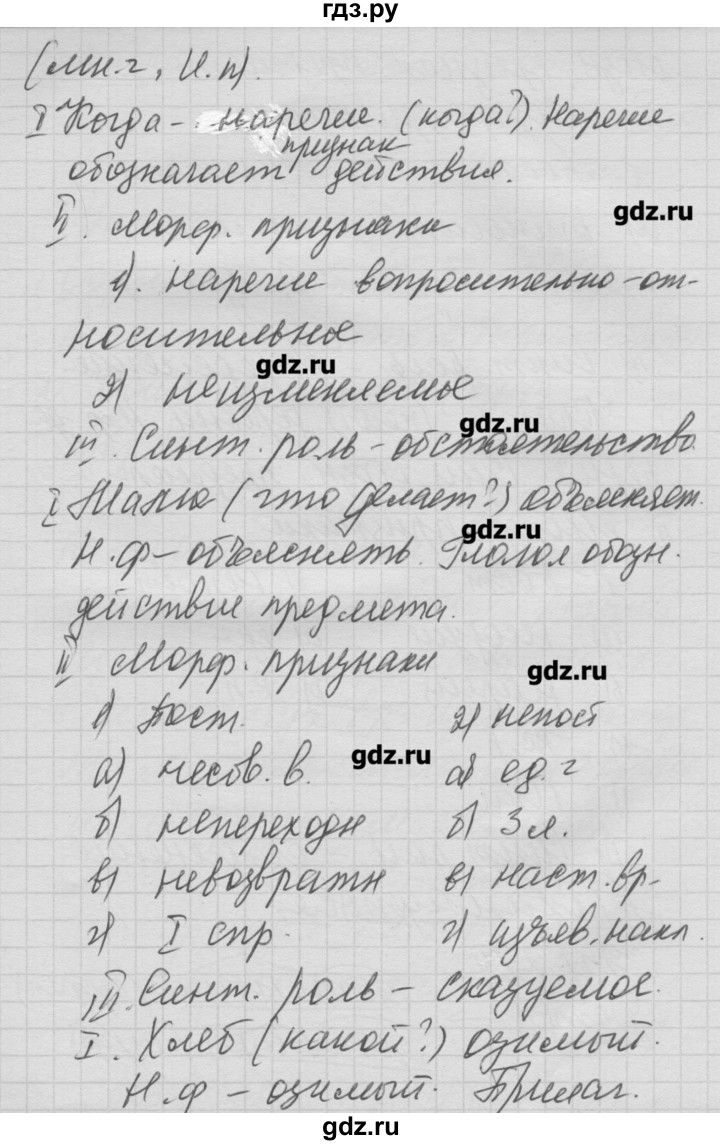 гдз.ру
(мн.ч, И.п).
I Когда - наречие. (когда?). Наречие
признак
обозначает действия.
gdz.ru
II. Морф. признаки
1). наречие вопросительно-от-
носительное
gdz.ru
2) неизменяемые
gdz.ru
III. Синт. роль - обстоятельство
I (что делает?) объясняет.
gdz.ru
Н.ф - объяснять. Глагол обозн.
действие предмета.
II Морф. признаки
gdz.ru
1) Пост. 2) непост
gdz.ru
а) несов. в. а) ед. ч
б) непереходн б) 3 л.
в) невозвратн в) наст. вр.
г) I спр. г) изъяв. накл.
III. Синт. роль - сказуемое.
I. Хлеб (какой?) озимый.
Н.ф - озимый. Прилаг.
gdz.ru